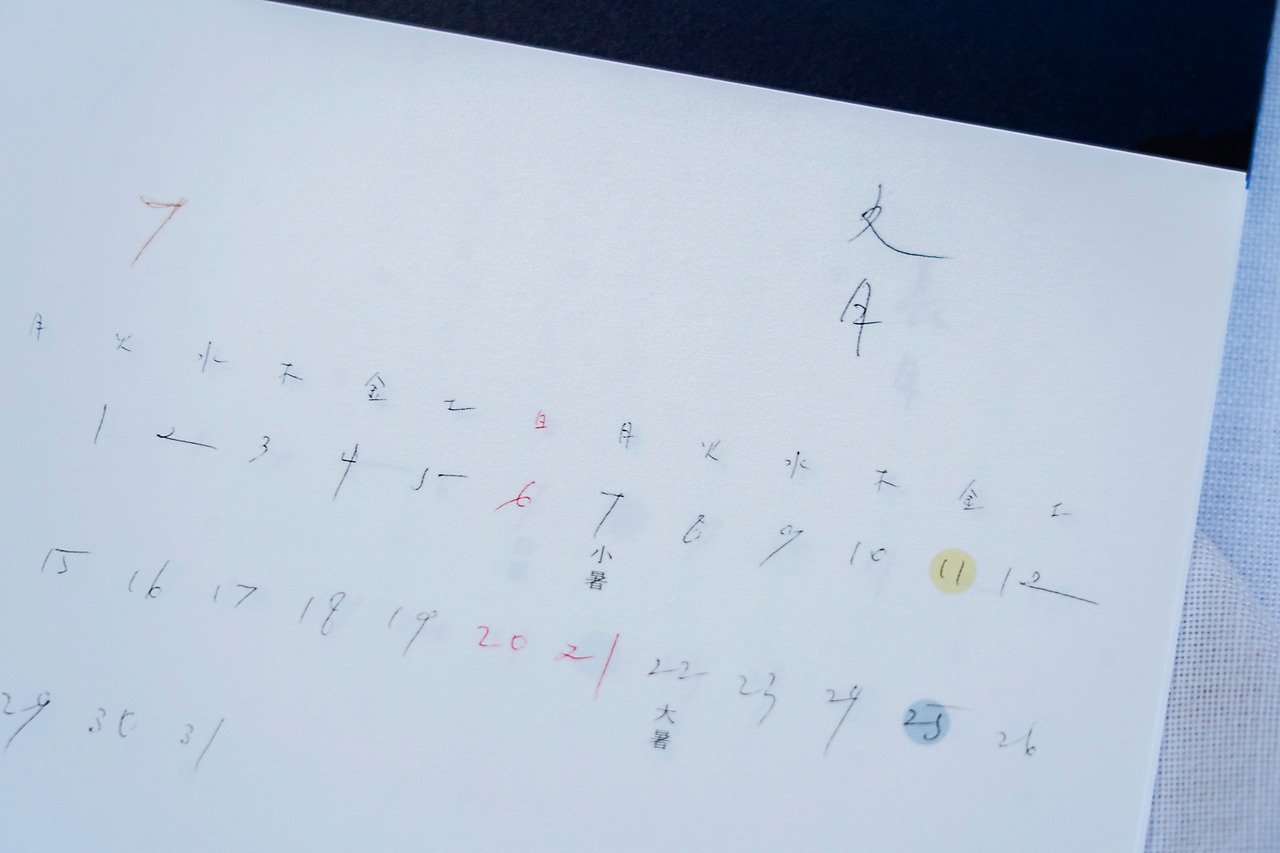 7
文月
月 火 水 木 金 土 日 月 火 水 木 金 土
1 2 3 4 5 6 7 8 9 10 11 12
小暑
15 16 17 18 19 20 21 22 23 24 25 26
大暑
29 30 31